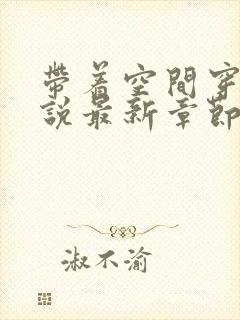 帶着空間穿
說最新章節
淑不渝